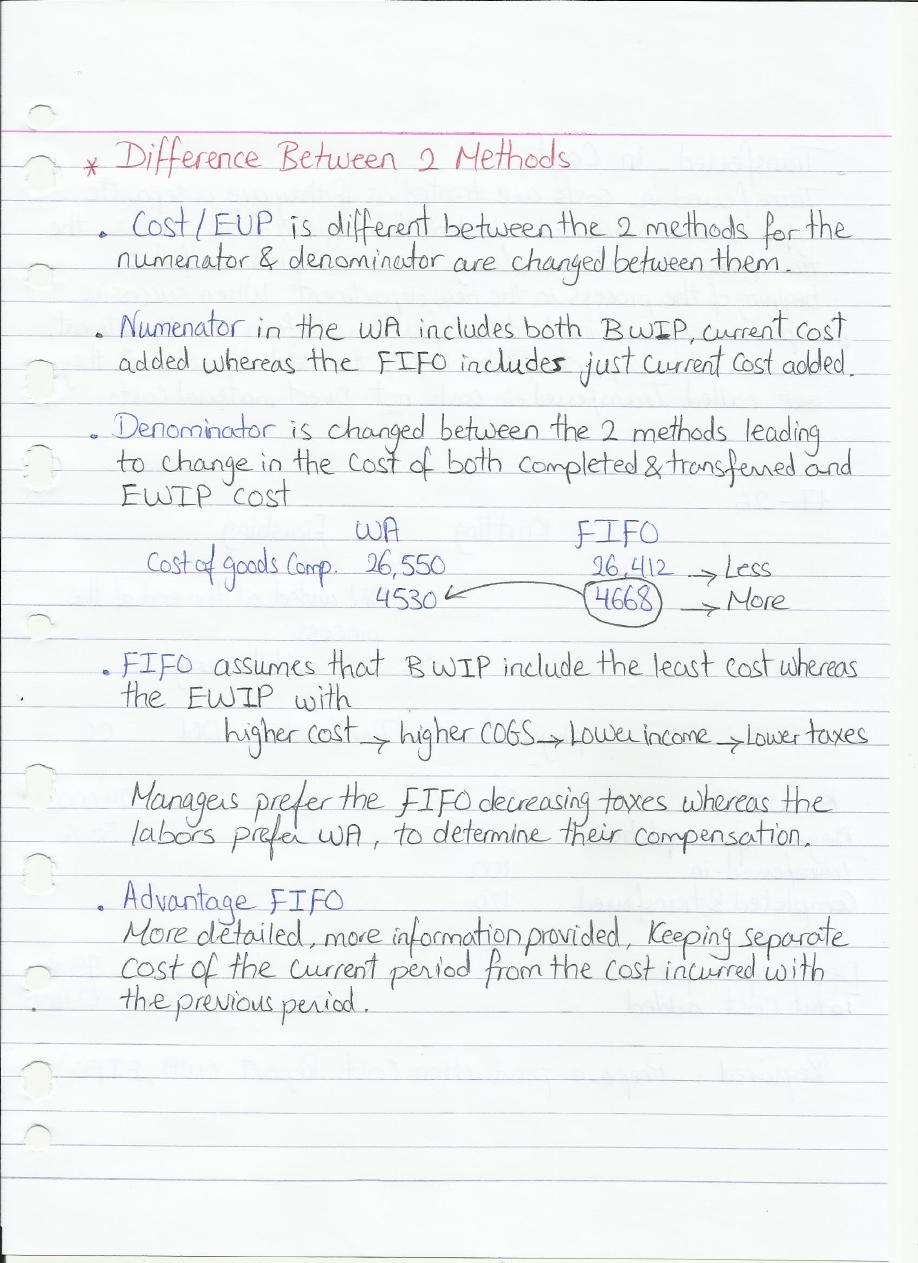 * Difference Between 2 Methods
. Cost/EUP is different between the 2 methods for the
numenator & denominator are changed between them.
. Numenator in the WA includes both BWIP, current cost
added whereas the FIFO includes just current cost added.
. Denominator is changed between the 2 methods leading
to change in the cost of both completed & transferred and
EWIP cost
WA FIFO
Cost of goods Comp. 26,550 26,412 → Less
4530 4668 → More
. FIFO assumes that BWIP include the least cost whereas
the EWIP with
higher cost → higher COGS → Lower income → Lower taxes
Managers prefer the FIFO decreasing taxes whereas the
labors prefer WA, to determine their compensation.
. Advantage FIFO
More detailed, more information provided, Keeping separate
cost of the current period from the cost incurred with
the previous period.